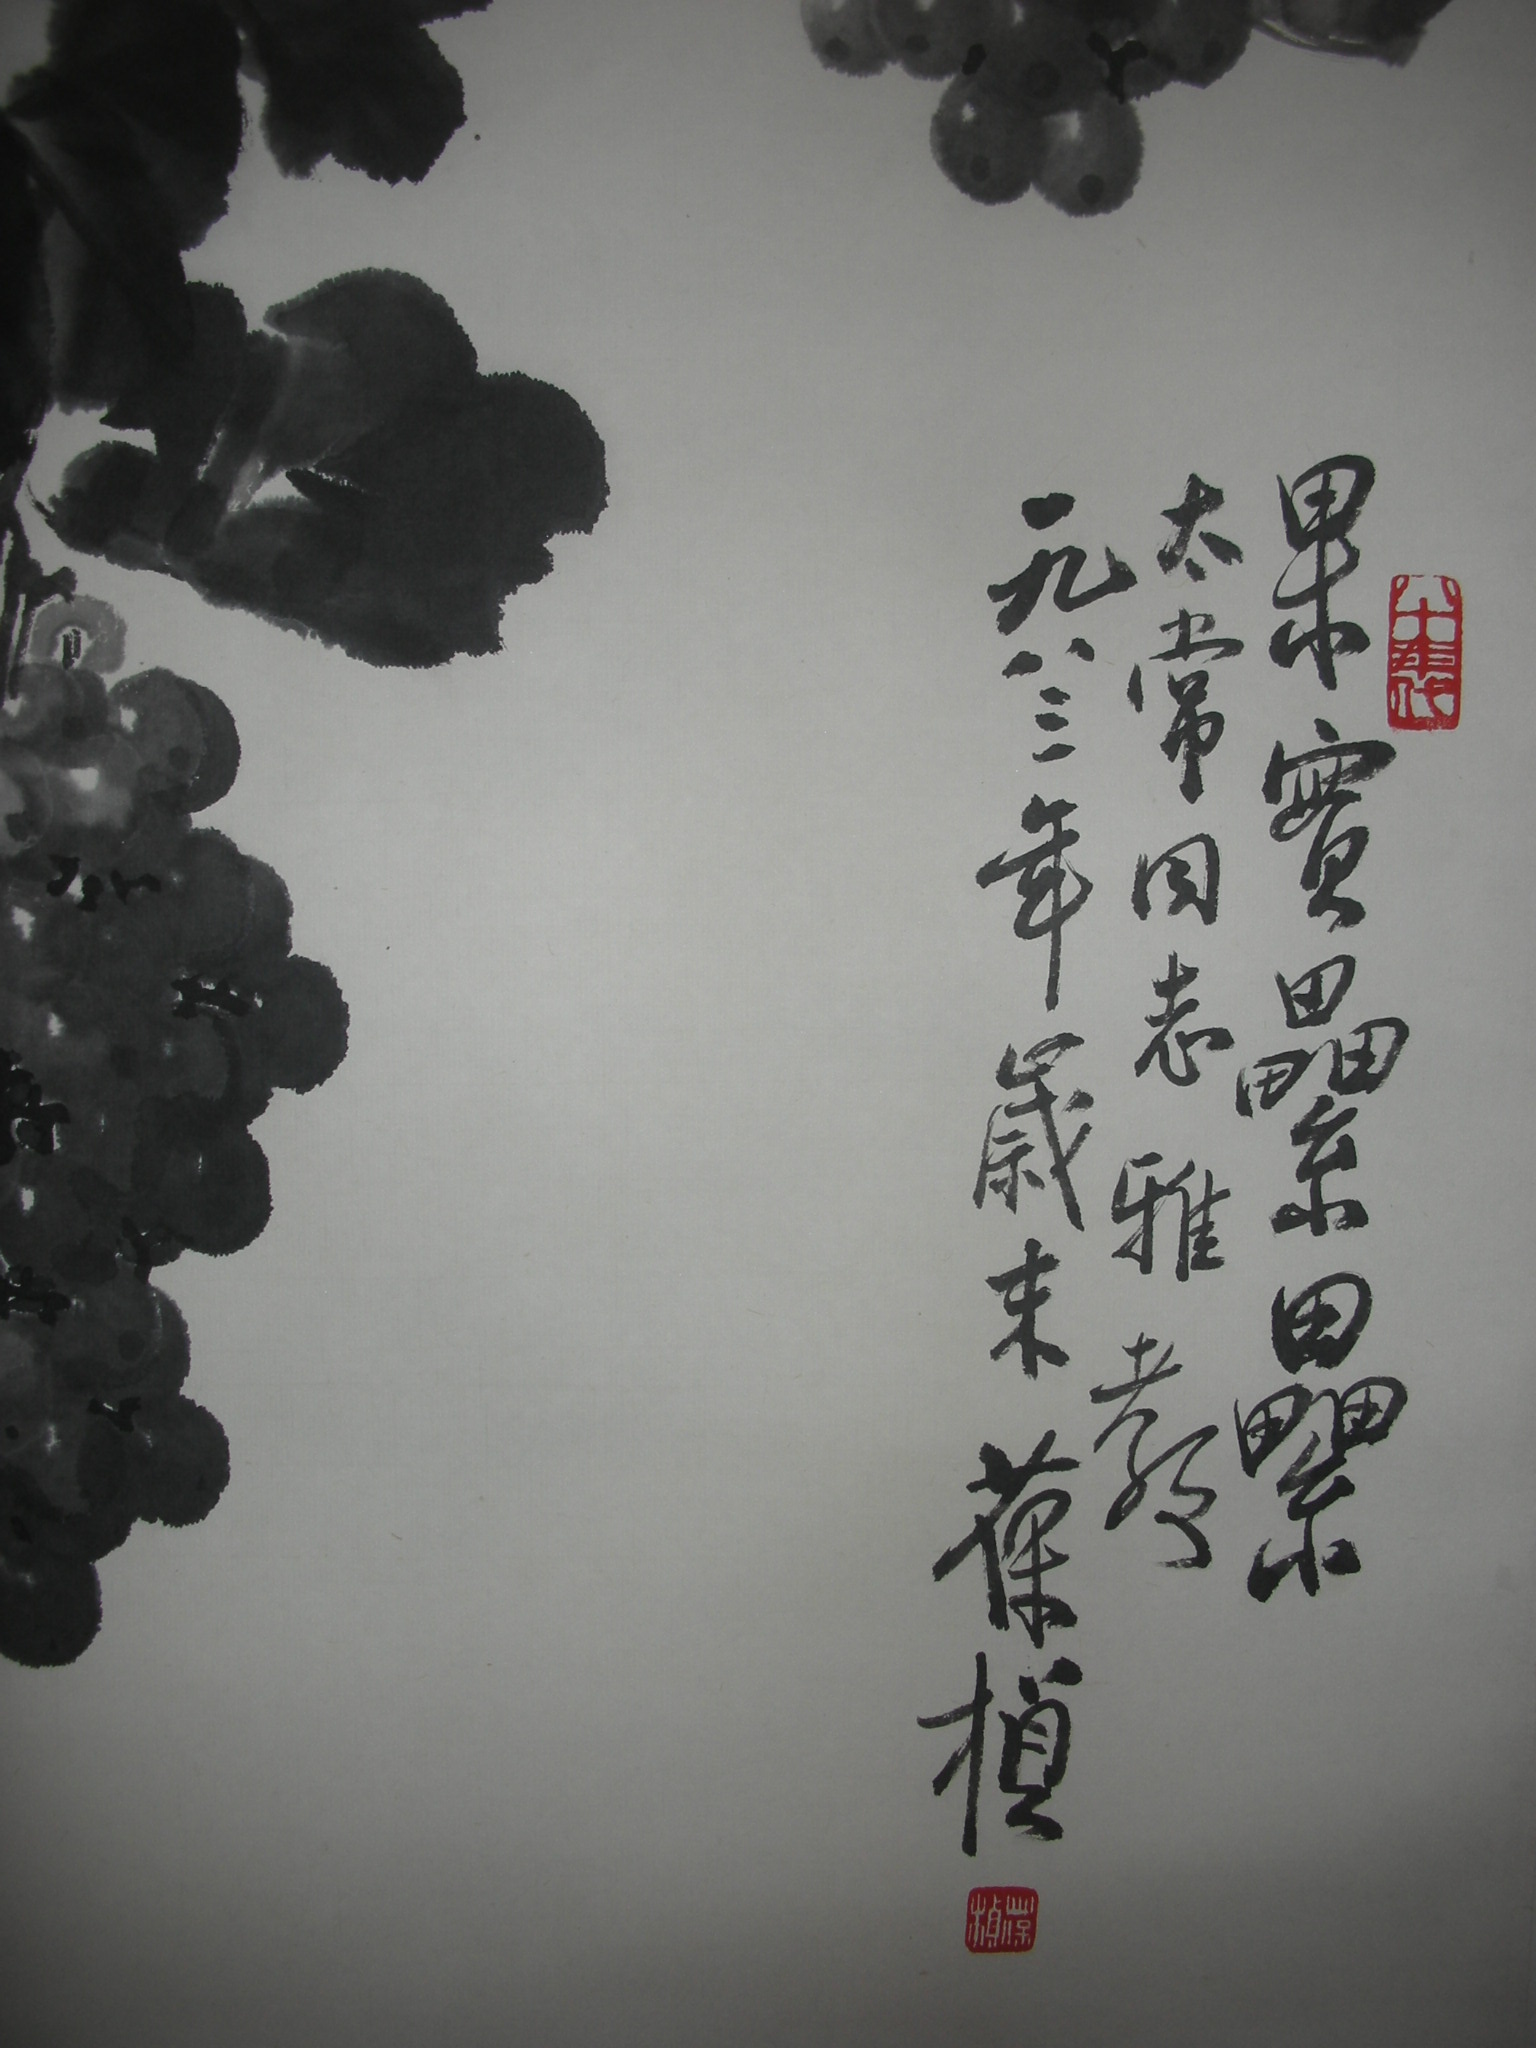 果實纍纍
太常同志雅教
一九八三年歲末葆楨
葆楨